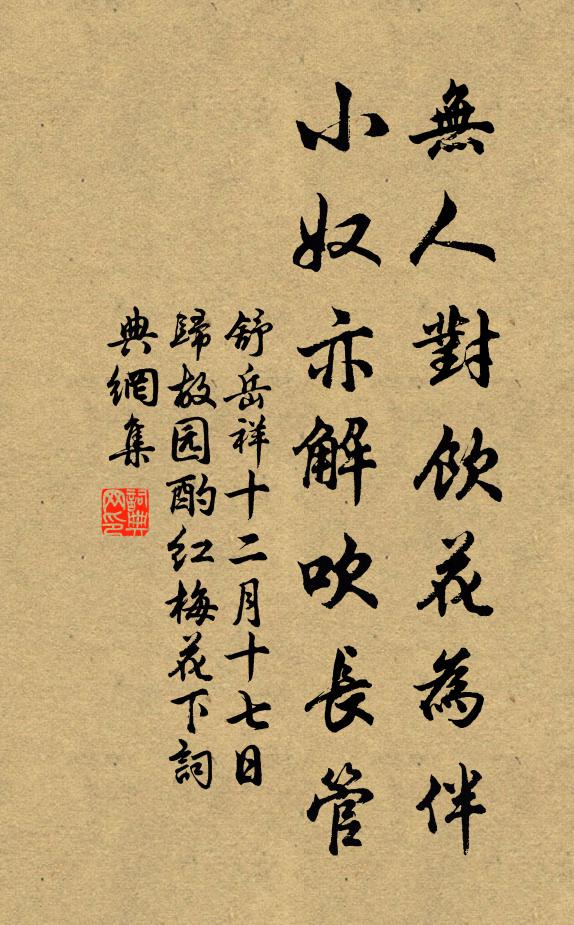 無人對飲花為伴
小奴亦解吹長管
舒岳祥十二月十七日
歸故园酌红梅花下詞
典網集
詞典
网印